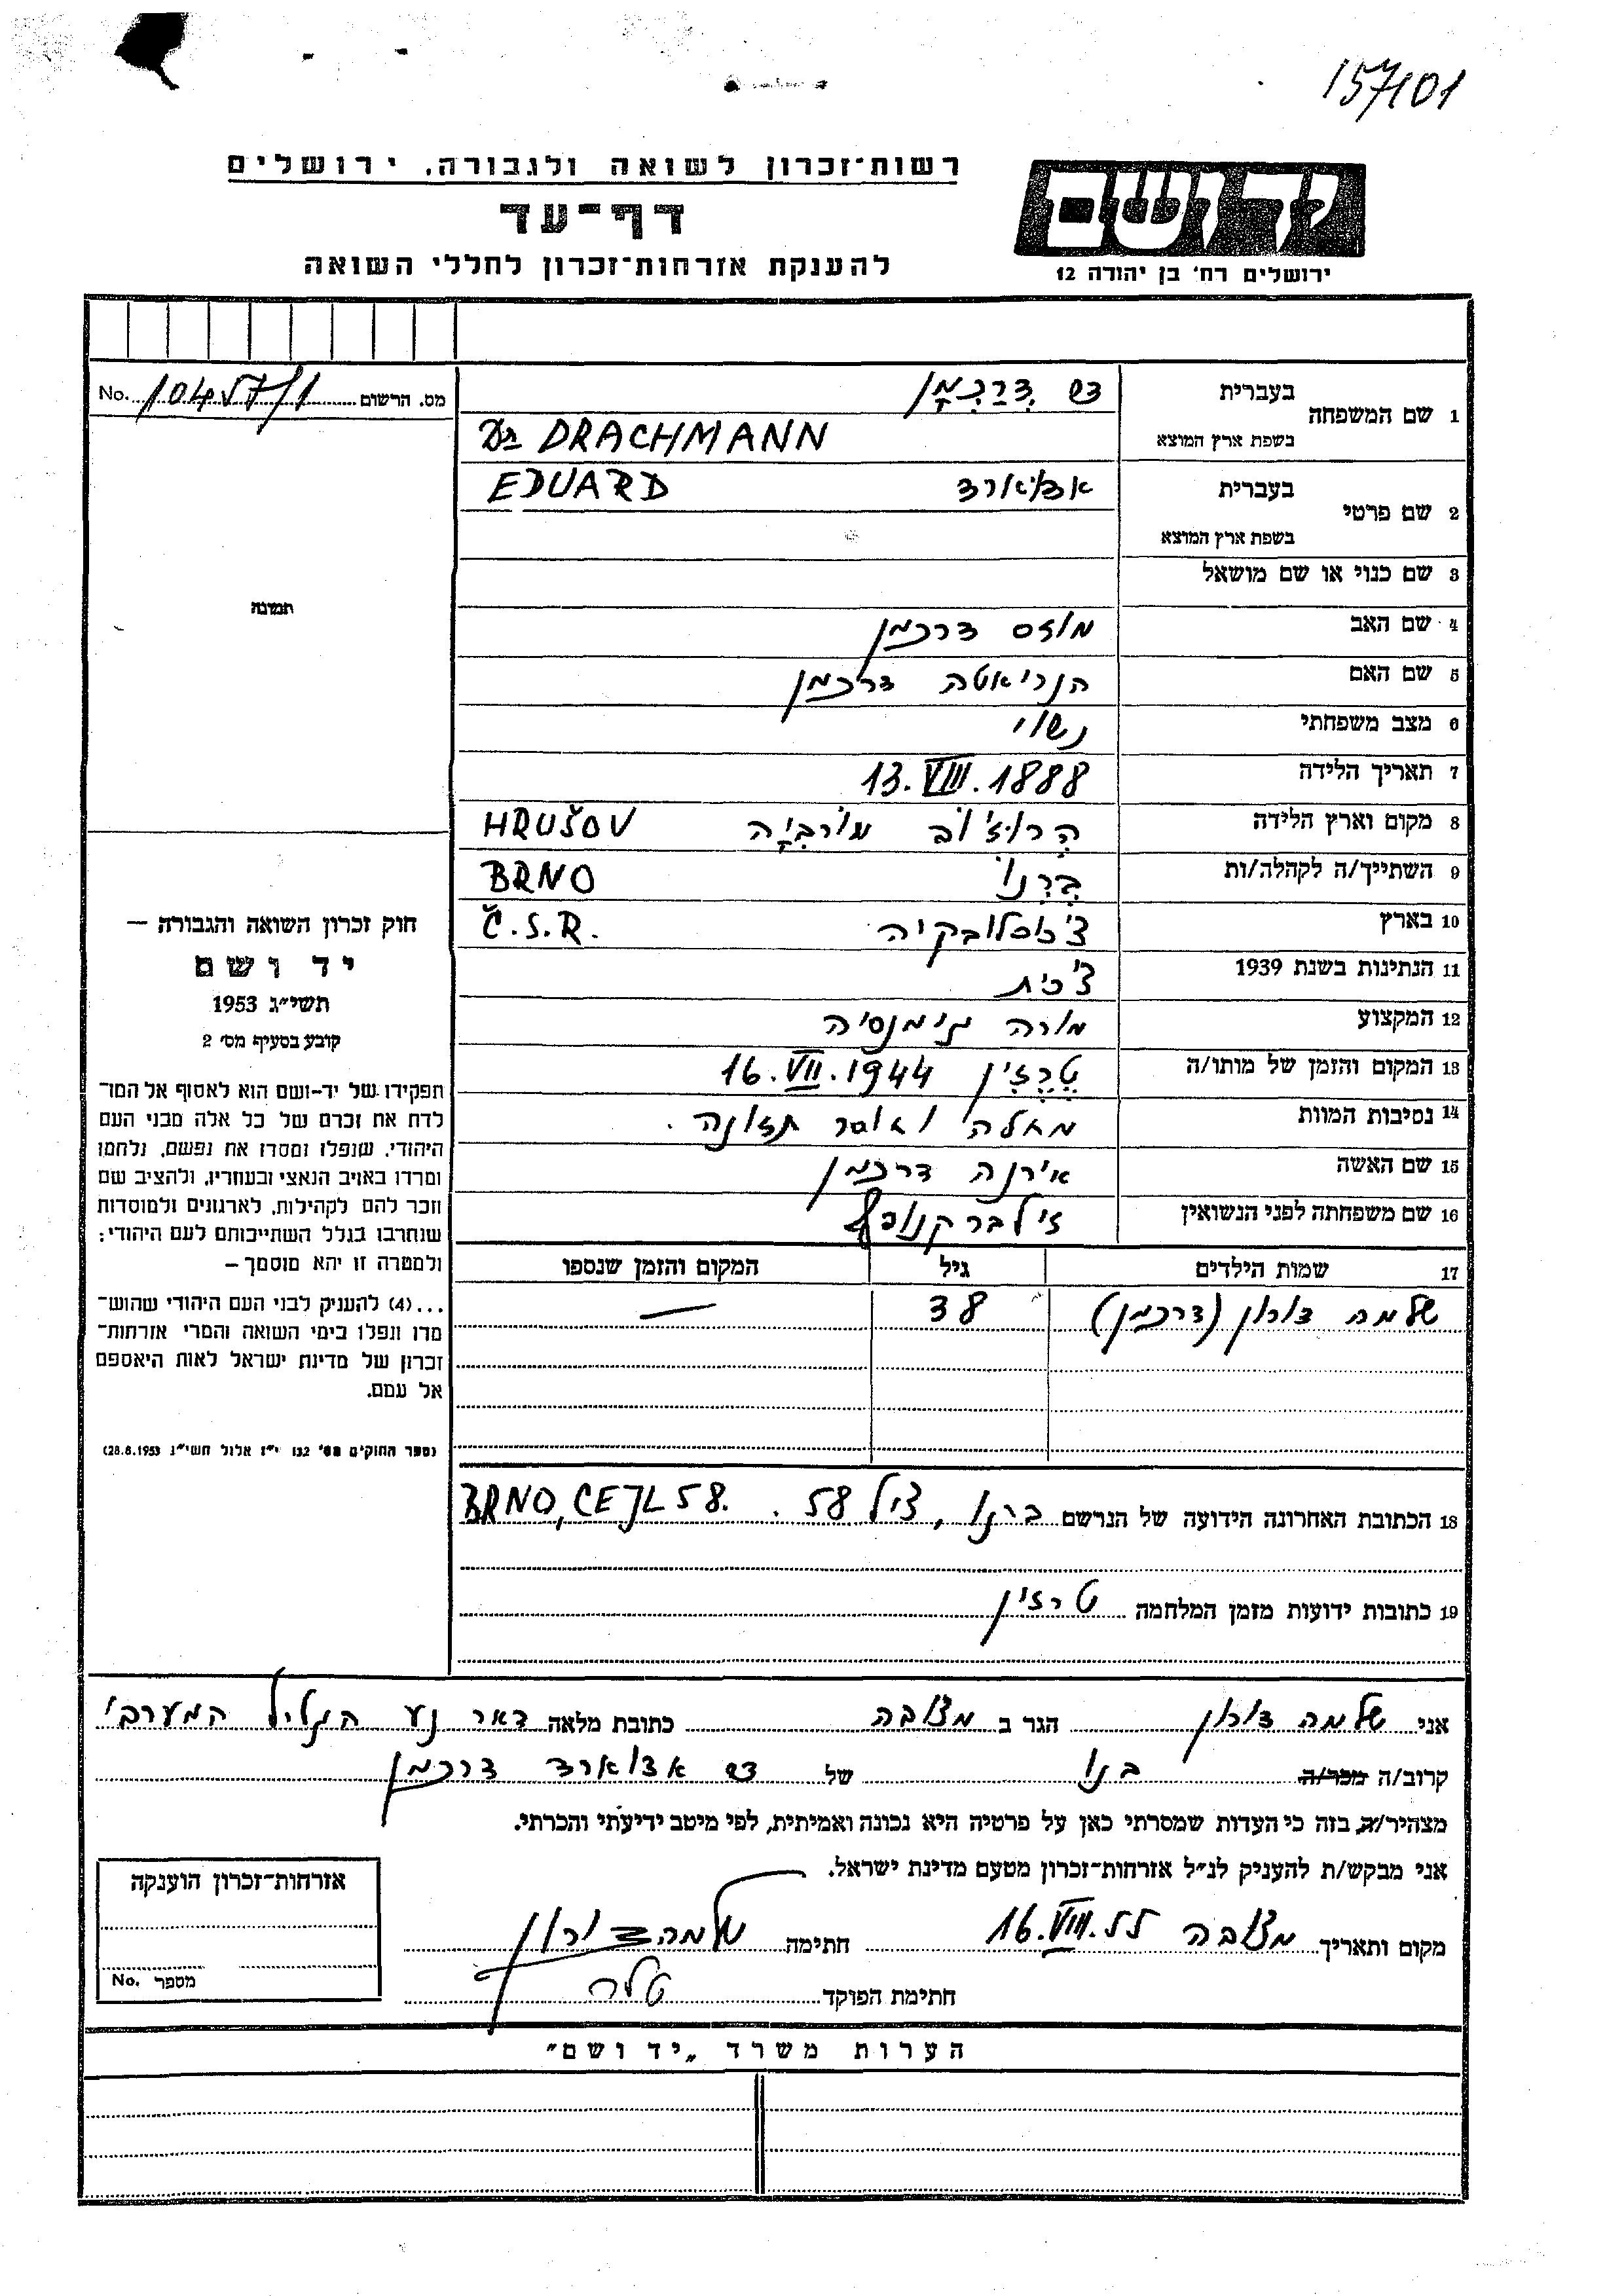 157101
רשות־זכרון לשואה ולגבורה, ירושלים
דף־עד
להענקת אזרחות־זכרון לחללי השואה
יד ושם
ירושלים רח' בן יהודה 12
מס. הרשום No. 10457/1
1 שם המשפחה
בעברית דר דְרַכְמָן
בשפת ארץ המוצא Dr DRACHMANN
2 שם פרטי
בעברית אדוארד EDUARD
בשפת ארץ המוצא
3 שם כנוי או שם מושאל
4 שם האב מוזס דרכמן
5 שם האם הנריאטה דרכמן
6 מצב משפחתי נשוי
7 תאריך הלידה 13.VIII.1888
8 מקום וארץ הלידה HRUŠOV
9 השתייך/ה לקהלה/ות ברנו BRNO
10 בארץ צ'כוסלובקיה Č.S.R.
11 הנתינות בשנת 1939 צ'כית
12 המקצוע מורה גימנסיה
13 המקום והזמן של מותו/ה טרזין 16.VII.1944
14 נסיבות המוות מחלה וחוסר תזונה.
15 שם האשה אירנה דרכמן
16 שם משפחתה לפני הנשואין זילברקנופף
17 שמות הילדים גיל המקום והזמן שנספו
שלמה דורון (דרכמן) 38 —
18 הכתובת האחרונה הידועה של הנרשם ברנו, צייל 58. BRNO, CEJL 58.
19 כתובות ידועות מזמן המלחמה טרזין
תמונה
חוק זכרון השואה והגבורה —
יד ושם
תשי״ג 1953
קובע בסעיף מס' 2
תפקידו של יד־ושם הוא לאסוף אל המו־
לדת את זכרם של כל אלה מבני העם
היהודי, שנפלו ומסרו את נפשם, נלחמו
ומרדו באויב הנאצי ובעוזריו, ולהציב שם
וזכר להם לקהילות, לארגונים ולמוסדות
שנחרבו בגלל השתייכותם לעם היהודי;
ולמטרה זו יהא מוסמך —
...(4) להעניק לבני העם היהודי שהוש־
מדו ונפלו בימי השואה והמרי אזרחות־
זכרון של מדינת ישראל לאות היאספם
אל עמם.
(ספר החוקים מס' 132 י״ז אלול תשי״ג 28.8.1953)
אני שלמה דורון הגר ב מצובה כתובת מלאה דאר נע הגליל המערבי
קרוב/ה מכר/ה בנו של דר אדוארד דרכמן
מצהיר/ה בזה כי העדות שמסרתי כאן על פרטיה היא נכונה ואמיתית, לפי מיטב ידיעתי והכרתי.
אני מבקש/ת להעניק לנ״ל אזרחות־זכרון מטעם מדינת ישראל.
מקום ותאריך מצובה 16.VIII.55 חתימה שלמה דורון
חתימת הפוקד
אזרחות־זכרון הוענקה
מספר No.
הערות משרד „יד ושם”